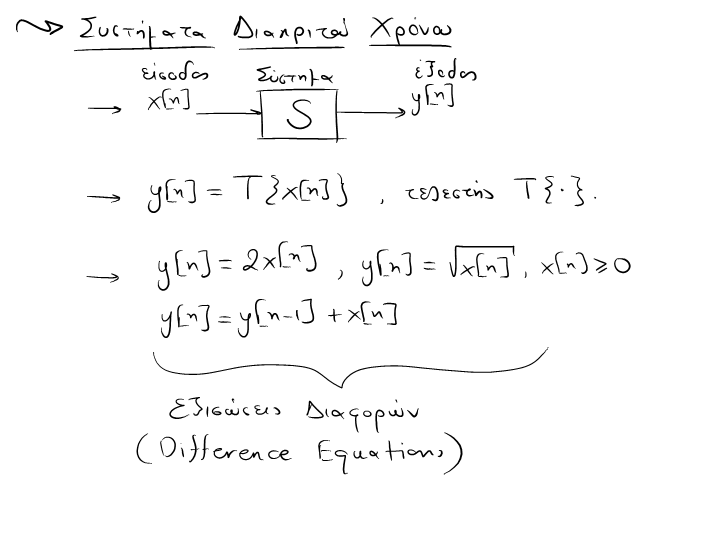 Συστήματα Διακριτού Χρόνου
είσοδος Σύστημα έξοδος
x[n] S y[n]
y[n] = T{x[n]} , τελεστής T{·}.
y[n] = 2x[n] , y[n] = √x[n] , x[n] ≥ 0
y[n] = y[n-1] + x[n]
Εξισώσεις Διαφορών
(Difference Equations)